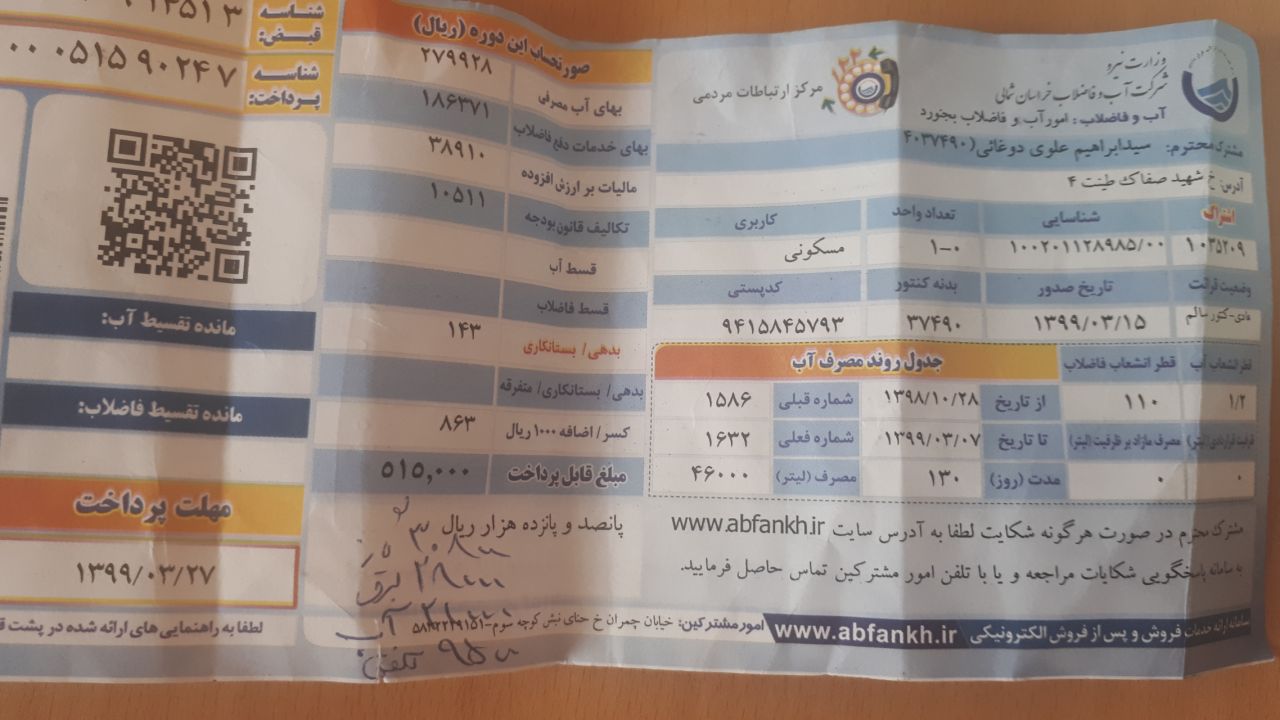 وزارت نیرو
شرکت آب و فاضلاب خراسان شمالی
آب و فاضلاب : امور آب و فاضلاب بجنورد
۱۲۲
مرکز ارتباطات مردمی
مشترک محترم: سیدابراهیم علوی دوغائی(۴۰۳۷۴۹۰
آدرس: خ شهید صفاک طینت ۴
اشتراک شناسایی تعداد واحد کاربری
۱۰۳۵۲۰۹ ۱۰۰۲۰۱۱۲۸۹۸۵/۰۰ ۱-۰ مسکونی
وضعیت قرائت تاریخ صدور بدنه کنتور کدپستی
عادی-کنتور سالم ۱۳۹۹/۰۳/۱۵ ۳۷۴۹۰ ۹۴۱۵۸۴۵۷۹۳
قطر انشعاب آب قطر انشعاب فاضلاب جدول روند مصرف آب
۱/۲ ۱۱۰ از تاریخ ۱۳۹۸/۱۰/۲۸ شماره قبلی ۱۵۸۶
ظرفیت قراردادی (لیتر) مصرف مازاد بر ظرفیت (لیتر) تا تاریخ ۱۳۹۹/۰۳/۰۷ شماره فعلی ۱۶۳۲
۰ ۰ مدت (روز) ۱۳۰ مصرف (لیتر) ۴۶۰۰۰
مشترک محترم در صورت هرگونه شکایت لطفا به آدرس سایت www.abfankh.ir
به سامانه پاسخگویی شکایات مراجعه و یا با تلفن امور مشترکین تماس حاصل فرمایید.
سامانه ارائه خدمات فروش و پس از فروش الکترونیکی www.abfankh.ir
امور مشترکین: خیابان چمران خ حنای نبش کوچه سوم-
صورتحساب این دوره (ریال)
بهای آب مصرفی ۲۷۹۹۲۸
بهای خدمات دفع فاضلاب ۱۸۶۳۷۱
مالیات بر ارزش افزوده ۳۸۹۱۰
تکالیف قانون بودجه ۱۰۵۱۱
قسط آب
قسط فاضلاب
بدهی/ بستانکاری ۱۴۳
بدهی/ بستانکاری/ متفرقه
کسر/ اضافه ۱۰۰۰ ریال ۸۶۳
مبلغ قابل پرداخت ۵۱۵,۰۰۰
پانصد و پانزده هزار ریال
برق
آب
تلفن
شناسه قبض:
شناسه پرداخت: ۰۰ ۰۵۱۵۹۰۲۴۷
مانده تقسیط آب:
مانده تقسیط فاضلاب:
مهلت پرداخت
۱۳۹۹/۰۳/۲۷
لطفا به راهنمایی های ارائه شده در پشت